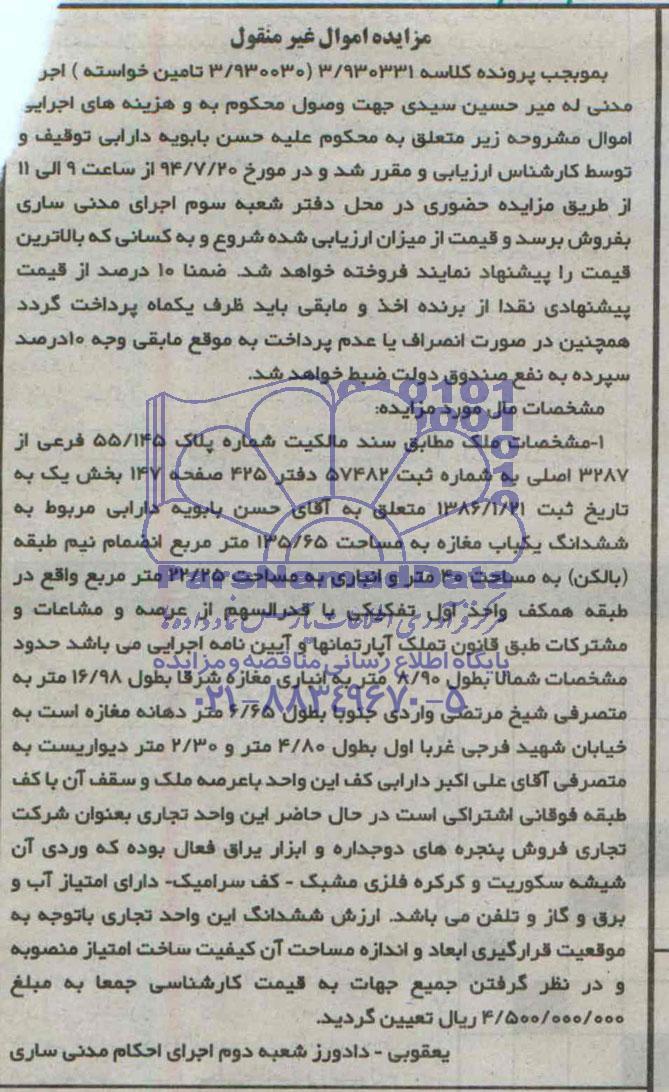 مزایده اموال غیر منقول
بموبجب پرونده کلاسه ۳/۹۳۰۳۳۱ (۳/۹۳۰۰۳۰ تامین خواسته ) اجر
مدنی له میر حسین سیدی جهت وصول محکوم به و هزینه های اجرایی
اموال مشروحه زیر متعلق به محکوم علیه حسن بابویه دارابی توقیف و
توسط کارشناس ارزیابی و مقرر شد و در مورخ ۹۴/۷/۲۰ از ساعت ۹ الی ۱۱
از طریق مزایده حضوری در محل دفتر شعبه سوم اجرای مدنی ساری
بفروش برسد و قیمت از میزان ارزیابی شده شروع و به کسانی که بالاترین
قیمت را پیشنهاد نمایند فروخته خواهد شد. ضمنا ۱۰ درصد از قیمت
پیشنهادی نقدا از برنده اخذ و مابقی باید ظرف یکماه پرداخت گردد
همچنین در صورت انصراف یا عدم پرداخت به موقع مابقی وجه ۱۰درصد
سپرده به نفع صندوق دولت ضبط خواهد شد.
مشخصات مال مورد مزایده:
۱-مشخصات ملک مطابق سند مالکیت شماره پلاک ۵۵/۱۴۵ فرعی از
۳۲۸۷ اصلی به شماره ثبت ۵۷۴۸۲ دفتر ۴۲۵ صفحه ۱۴۷ بخش یک به
تاریخ ثبت ۱۳۸۶/۱/۲۱ متعلق به آقای حسن بابویه دارابی مربوط به
ششدانگ یکباب مغازه به مساحت ۱۳۵/۶۵ متر مربع انضمام نیم طبقه
(بالکن) به مساحت ۴۰ متر و انباری به مساحت ۲۲/۲۵ متر مربع واقع در
ParsNamadData
طبقه همکف واحد اول تفکیکی با قدرالسهم از عرصه و مشاعات و
مشترکات طبق قانون تملک آپارتمانها و آیین نامه اجرایی می باشد حدود
پایگاه اطلاع رسانی مناقصه و مزایده
مشخصات شمالا بطول ۸/۹۰ متر به انباری مغازه شرقا بطول ۱۶/۹۸ متر به
۰۲۱-۸۸۳۴۹۶۷۰-۵
متصرفی شیخ مرتضی واردی جنوبا بطول ۶/۶۵ متر دهانه مغازه است به
خیابان شهید فرجی غربا اول بطول ۴/۸۰ متر و ۲/۳۰ متر دیواریست به
متصرفی آقای علی اکبر دارابی کف این واحد باعرصه ملک و سقف آن با کف
طبقه فوقانی اشتراکی است در حال حاضر این واحد تجاری بعنوان شرکت
تجاری فروش پنجره های دوجداره و ابزار یراق فعال بوده که وردی آن
شیشه سکوریت و کرکره فلزی مشبک - کف سرامیک- دارای امتیاز آب و
برق و گاز و تلفن می باشد. ارزش ششدانگ این واحد تجاری باتوجه به
موقعیت قرارگیری ابعاد و اندازه مساحت آن کیفیت ساخت امتیاز منصوبه
و در نظر گرفتن جمیع جهات به قیمت کارشناسی جمعا به مبلغ
۴/۵۰۰/۰۰۰/۰۰۰ ریال تعیین گردید.
یعقوبی - دادورز شعبه دوم اجرای احکام مدنی ساری